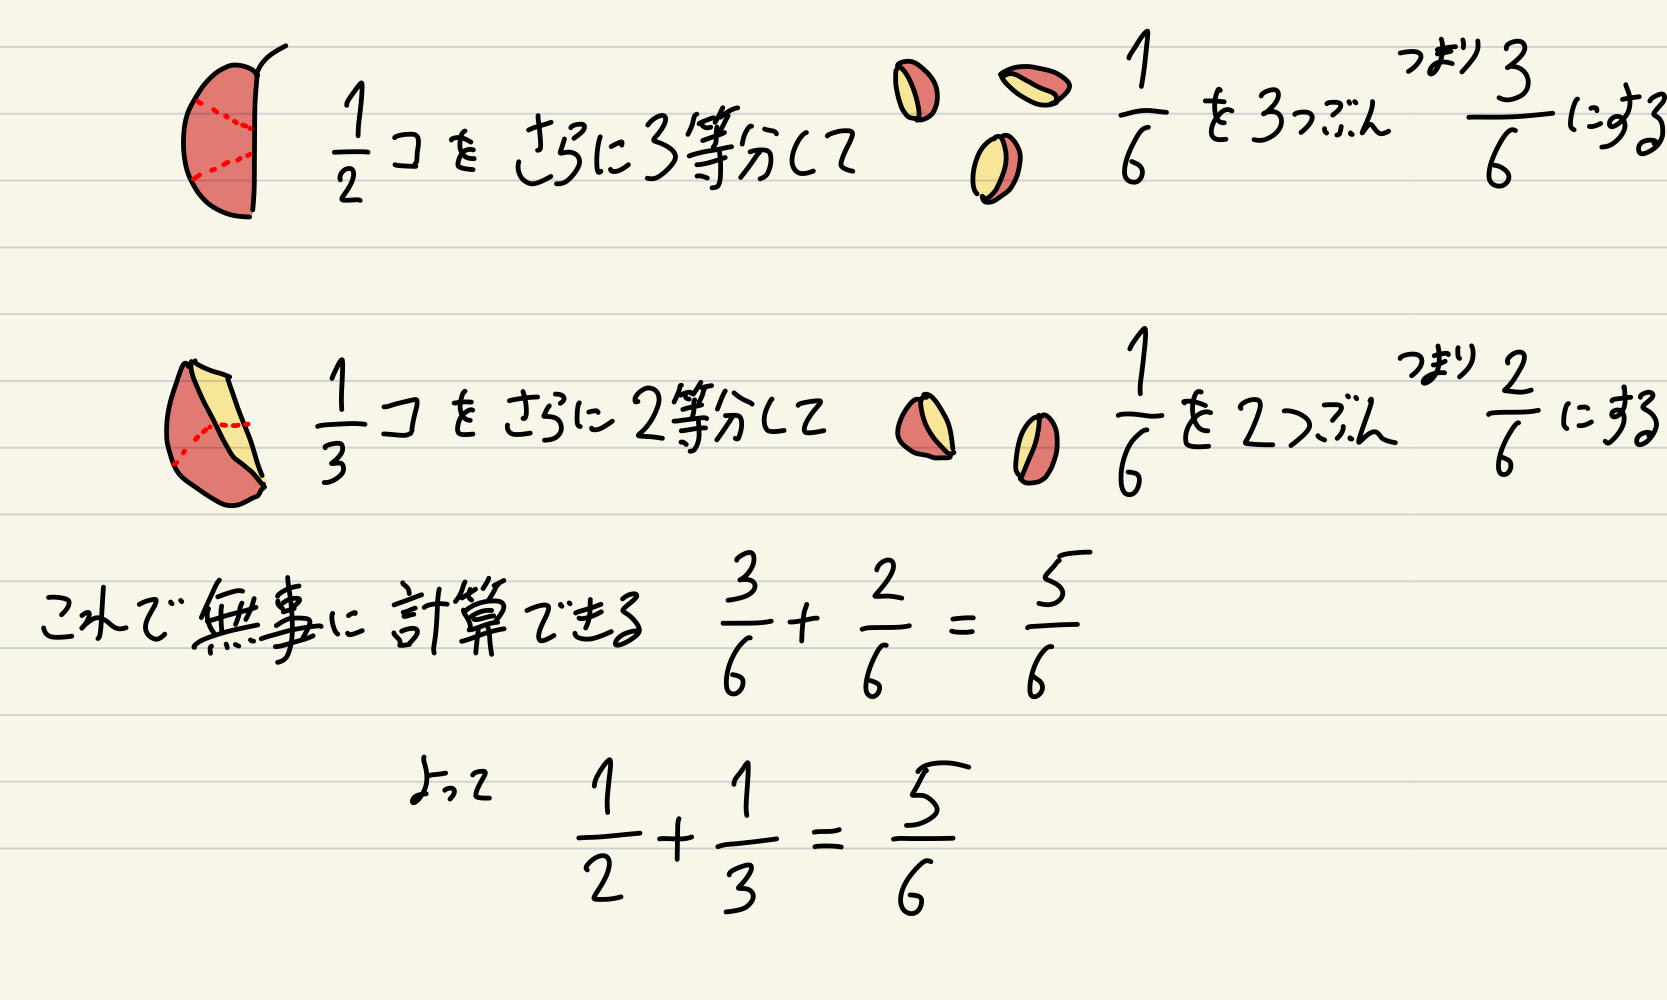 1/2 コを さらに3等分して 1/6 を3つぶん つまり 3/6 にする
1/3 コを さらに2等分して 1/6 を2つぶん つまり 2/6 にする
これで無事に計算できる 3/6 + 2/6 = 5/6
よって 1/2 + 1/3 = 5/6